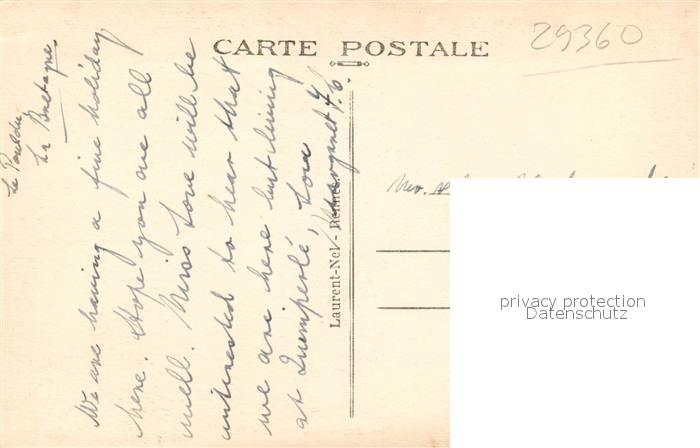 CARTE POSTALE
29360
Le Pouldu
La Bretagne.
We are having a fine holiday
here. Hope you are all
well. Miss Love will be
interested to hear that
we are here but living
at Quimperlé, Love
Margaret
Laurent-Nel - Rennes.
privacy protection
Datenschutz